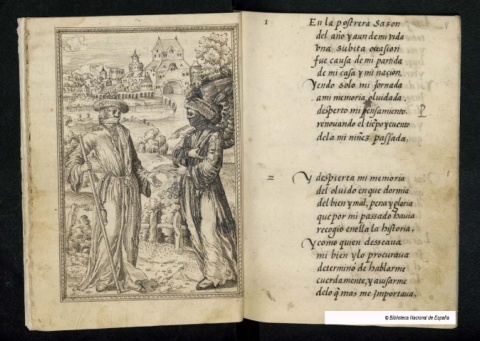 1 En la postrera sazon
del año y aun de mi vida
vna subita ocasion
fue causa de mi partida
de mi casa y mi nacion.
Yendo solo mi jornada
a mi memoria oluidada,
desperto mi pensamiento
renouando el tiẽpo y cuento
de la mi niñez passada.
2 Y despierta mi memoria
del oluido en que dormia
del bien y mal, pena y gloria
que por mi passado hauia
recogio en ella la historia.
Y como quien desseaua
mi bien y lo procuraua
determinò de hablarme
cuerdamente, y auisarme
de lo q̃ mas me importaua.
© Biblioteca Nacional de España